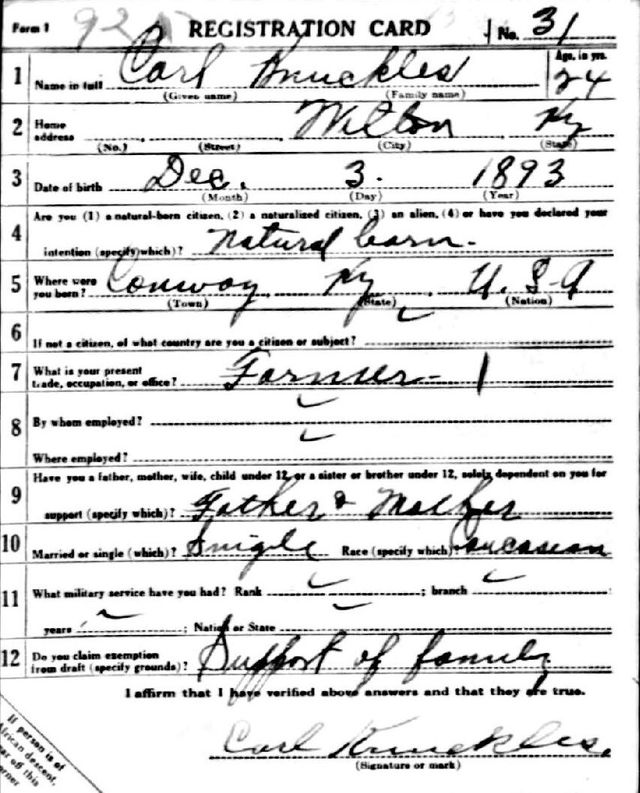 Form 1 REGISTRATION CARD No. 31
1 Name in full Carl Knuckles Age, in yrs. 24
(Given name) (Family name)
2 Home address Wilton Ky
(No.) (Street) (City) (State)
3 Date of birth Dec. 3. 1893
(Month) (Day) (Year)
4 Are you (1) a natural-born citizen, (2) a naturalized citizen, (3) an alien, (4) or have you declared your
intention (specify which)? natural born
5 Where were you born? Conway Ky. U.S.A
(Town) (State) (Nation)
6 If not a citizen, of what country are you a citizen or subject?
7 What is your present trade, occupation, or office? Farmer 1
8 By whom employed?
Where employed?
9 Have you a father, mother, wife, child under 12, or a sister or brother under 12, solely dependent on you for
support (specify which)? Father & Mother
10 Married or single (which)? Single Race (specify which) Caucasian
11 What military service have you had? Rank ; branch
years ; Nation or State
12 Do you claim exemption from draft (specify grounds)? Support of family
I affirm that I have verified above answers and that they are true.
Carl Knuckles.
(Signature or mark)
If person is of
African descent,
off this
corner